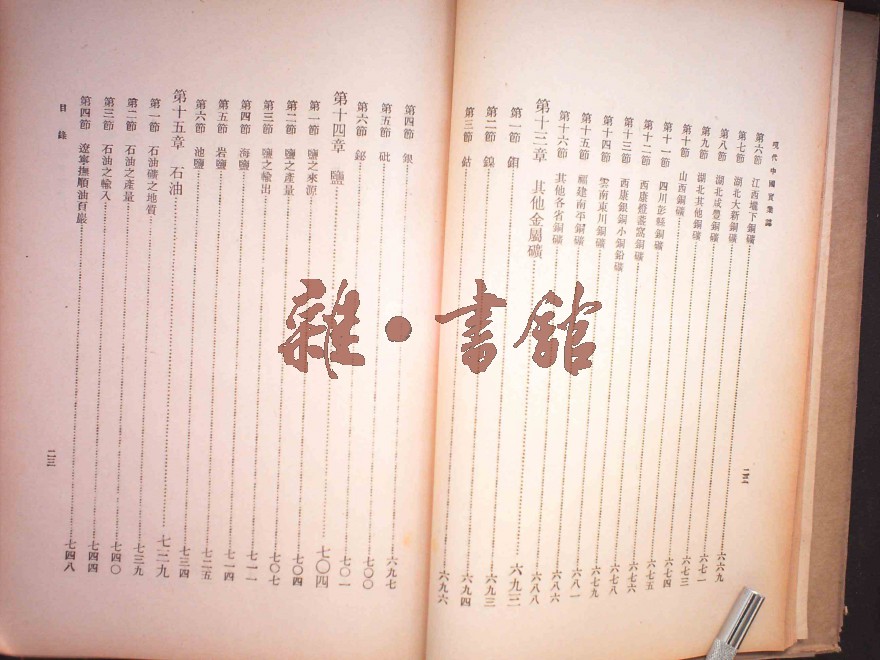 現代中國實業誌
第六節 江西城下銅礦 六六九
第七節 湖北大新銅礦 六七一
第八節 湖北成豐銅礦 六七三
第九節 湖北其他銅礦 六七四
第十節 山西銅礦 六七五
第十一節 四川彭縣銅礦 六七六
第十二節 西康燈盞窩銅礦 六七八
第十三節 西康銀銅小銅鉛礦 六七九
第十四節 雲南東川銅礦 六八一
第十五節 福建南平銅礦 六八六
第十六節 其他各省銅礦 六八八
第十三章 其他金屬礦 六九三
第一節 鉬 六九三
第二節 鎳 六九四
第三節 鈷 六九六
二二
第四節 銀 六九七
第五節 砒 七〇〇
第六節 鉍 七〇一
第十四章 鹽 七〇四
第一節 鹽之來源 七〇四
第二節 鹽之產量 七〇七
第三節 鹽之輸出 七一一
第四節 海鹽 七一四
第五節 岩鹽 七二五
第六節 池鹽 七三四
第十五章 石油 七三九
第一節 石油礦之地質 七三九
第二節 石油之產量 七四〇
第三節 石油之輸入 七四四
第四節 遼寧撫順油百巖 七四八
目錄
二三
雜·書館